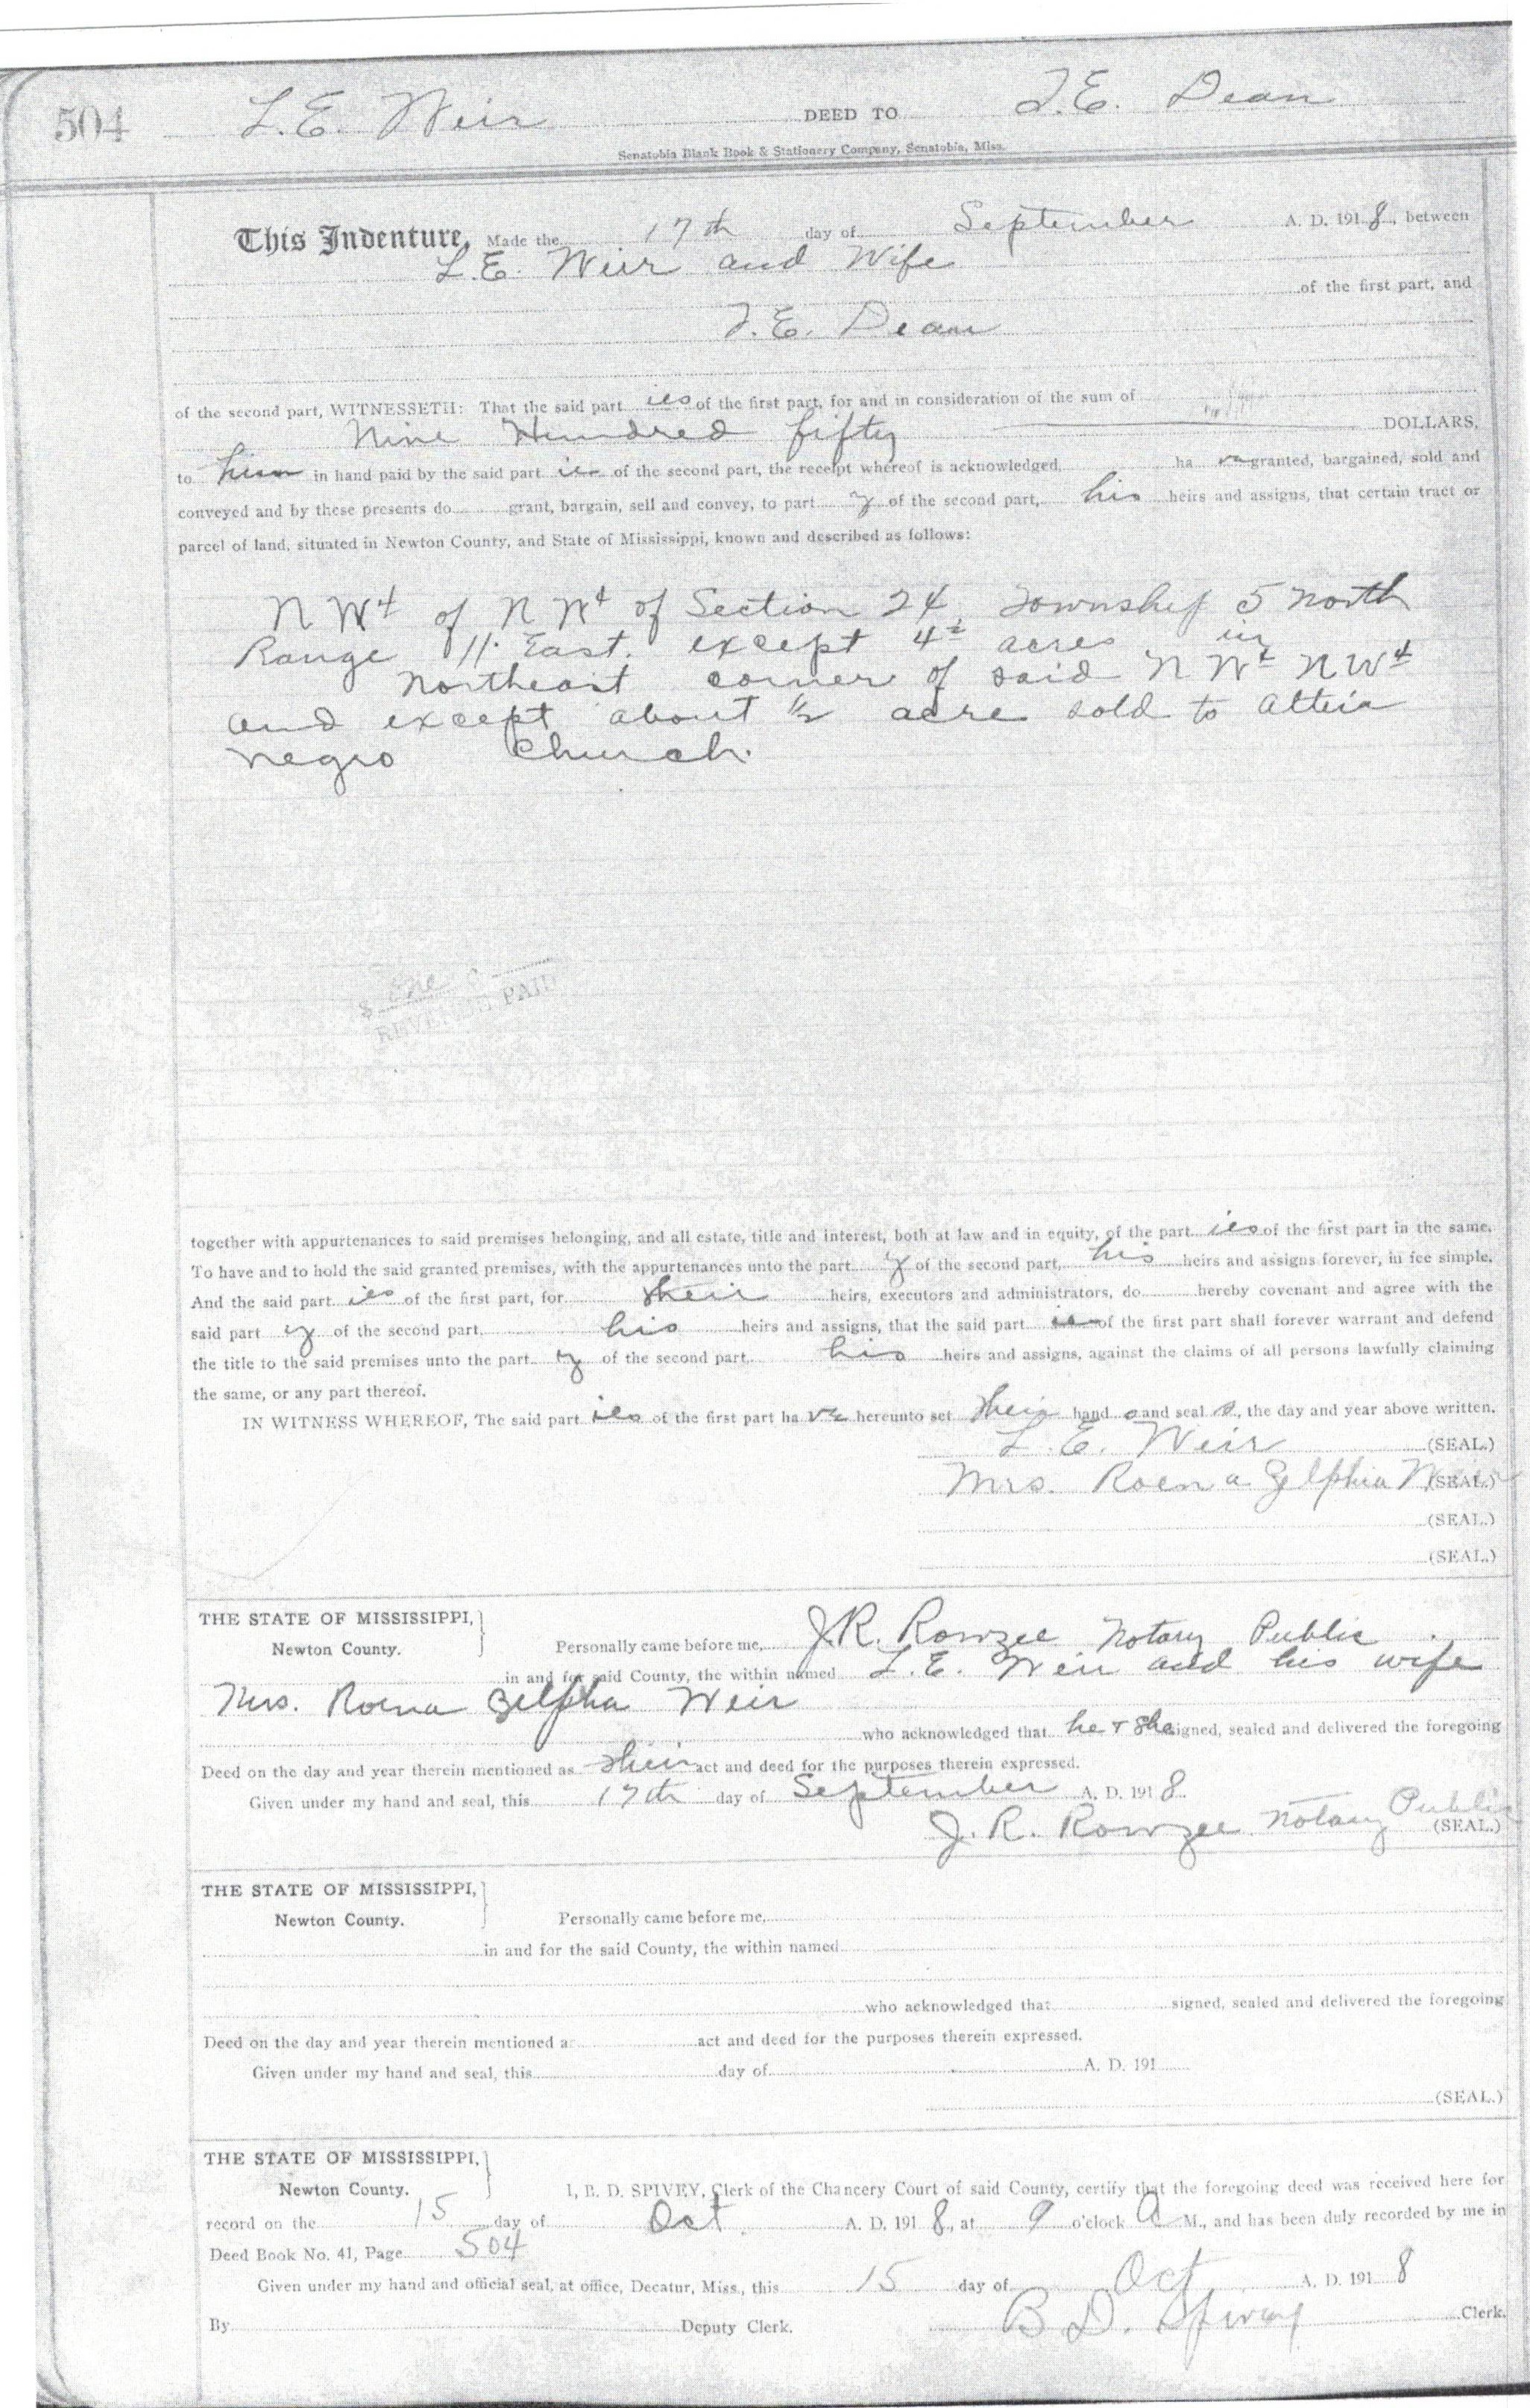 504 L. E. Weir DEED TO T. E. Dean
Senatobia Blank Book & Stationery Company, Senatobia, Miss.
This Indenture, Made the 17th day of September A. D. 1918, between
L. E. Weir and Wife
of the first part, and
T. E. Dean
of the second part, WITNESSETH: That the said parties of the first part, for and in consideration of the sum of
Nine Hundred fifty DOLLARS,
to him in hand paid by the said part ies of the second part, the receipt whereof is acknowledged, ha ve granted, bargained, sold and
conveyed and by these presents do grant, bargain, sell and convey, to part y of the second part, his heirs and assigns, that certain tract or
parcel of land, situated in Newton County, and State of Mississippi, known and described as follows:
N W¼ of N W¼ of Section 24, Township 5 North
Range 11 East. except 4½ acres in
Northeast corner of said N W¼ N W¼
and except about ½ acre sold to
negro Church.
$ One
REVENUE PAID
together with appurtenances to said premises belonging, and all estate, title and interest, both at law and in equity, of the part ies of the first part in the same.
To have and to hold the said granted premises, with the appurtenances unto the part y of the second part, his heirs and assigns forever, in fee simple.
And the said part ies of the first part, for their heirs, executors and administrators, do hereby covenant and agree with the
said part y of the second part, his heirs and assigns, that the said part ies of the first part shall forever warrant and defend
the title to the said premises unto the part y of the second part, his heirs and assigns, against the claims of all persons lawfully claiming
the same, or any part thereof.
IN WITNESS WHEREOF, The said part ies of the first part ha ve hereunto set their hand s and seal s, the day and year above written.
L. E. Weir (SEAL.)
Mrs. Roena Zelphia Weir (SEAL.)
(SEAL.)
(SEAL.)
THE STATE OF MISSISSIPPI,
Newton County. Personally came before me, J. R. Rowzee Notary Public
in and for said County, the within named L. E. Weir and his wife
Mrs. Roena Zelpha Weir
who acknowledged that he & she signed, sealed and delivered the foregoing
Deed on the day and year therein mentioned as their act and deed for the purposes therein expressed.
Given under my hand and seal, this 17th day of September A. D. 1918.
J. R. Rowzee Notary Public (SEAL.)
THE STATE OF MISSISSIPPI,
Newton County. Personally came before me,
in and for the said County, the within named
who acknowledged that signed, sealed and delivered the foregoing
Deed on the day and year therein mentioned as act and deed for the purposes therein expressed.
Given under my hand and seal, this day of A. D. 191
(SEAL.)
THE STATE OF MISSISSIPPI,
Newton County. I, B. D. SPIVEY, Clerk of the Chancery Court of said County, certify that the foregoing deed was received here for
record on the 15 day of Oct. A. D. 1918, at 9 o'clock A M., and has been duly recorded by me in
Deed Book No. 41, Page 504
Given under my hand and official seal, at office, Decatur, Miss., this 15 day of Oct. A. D. 1918
By Deputy Clerk. B. D. Spivey Clerk.